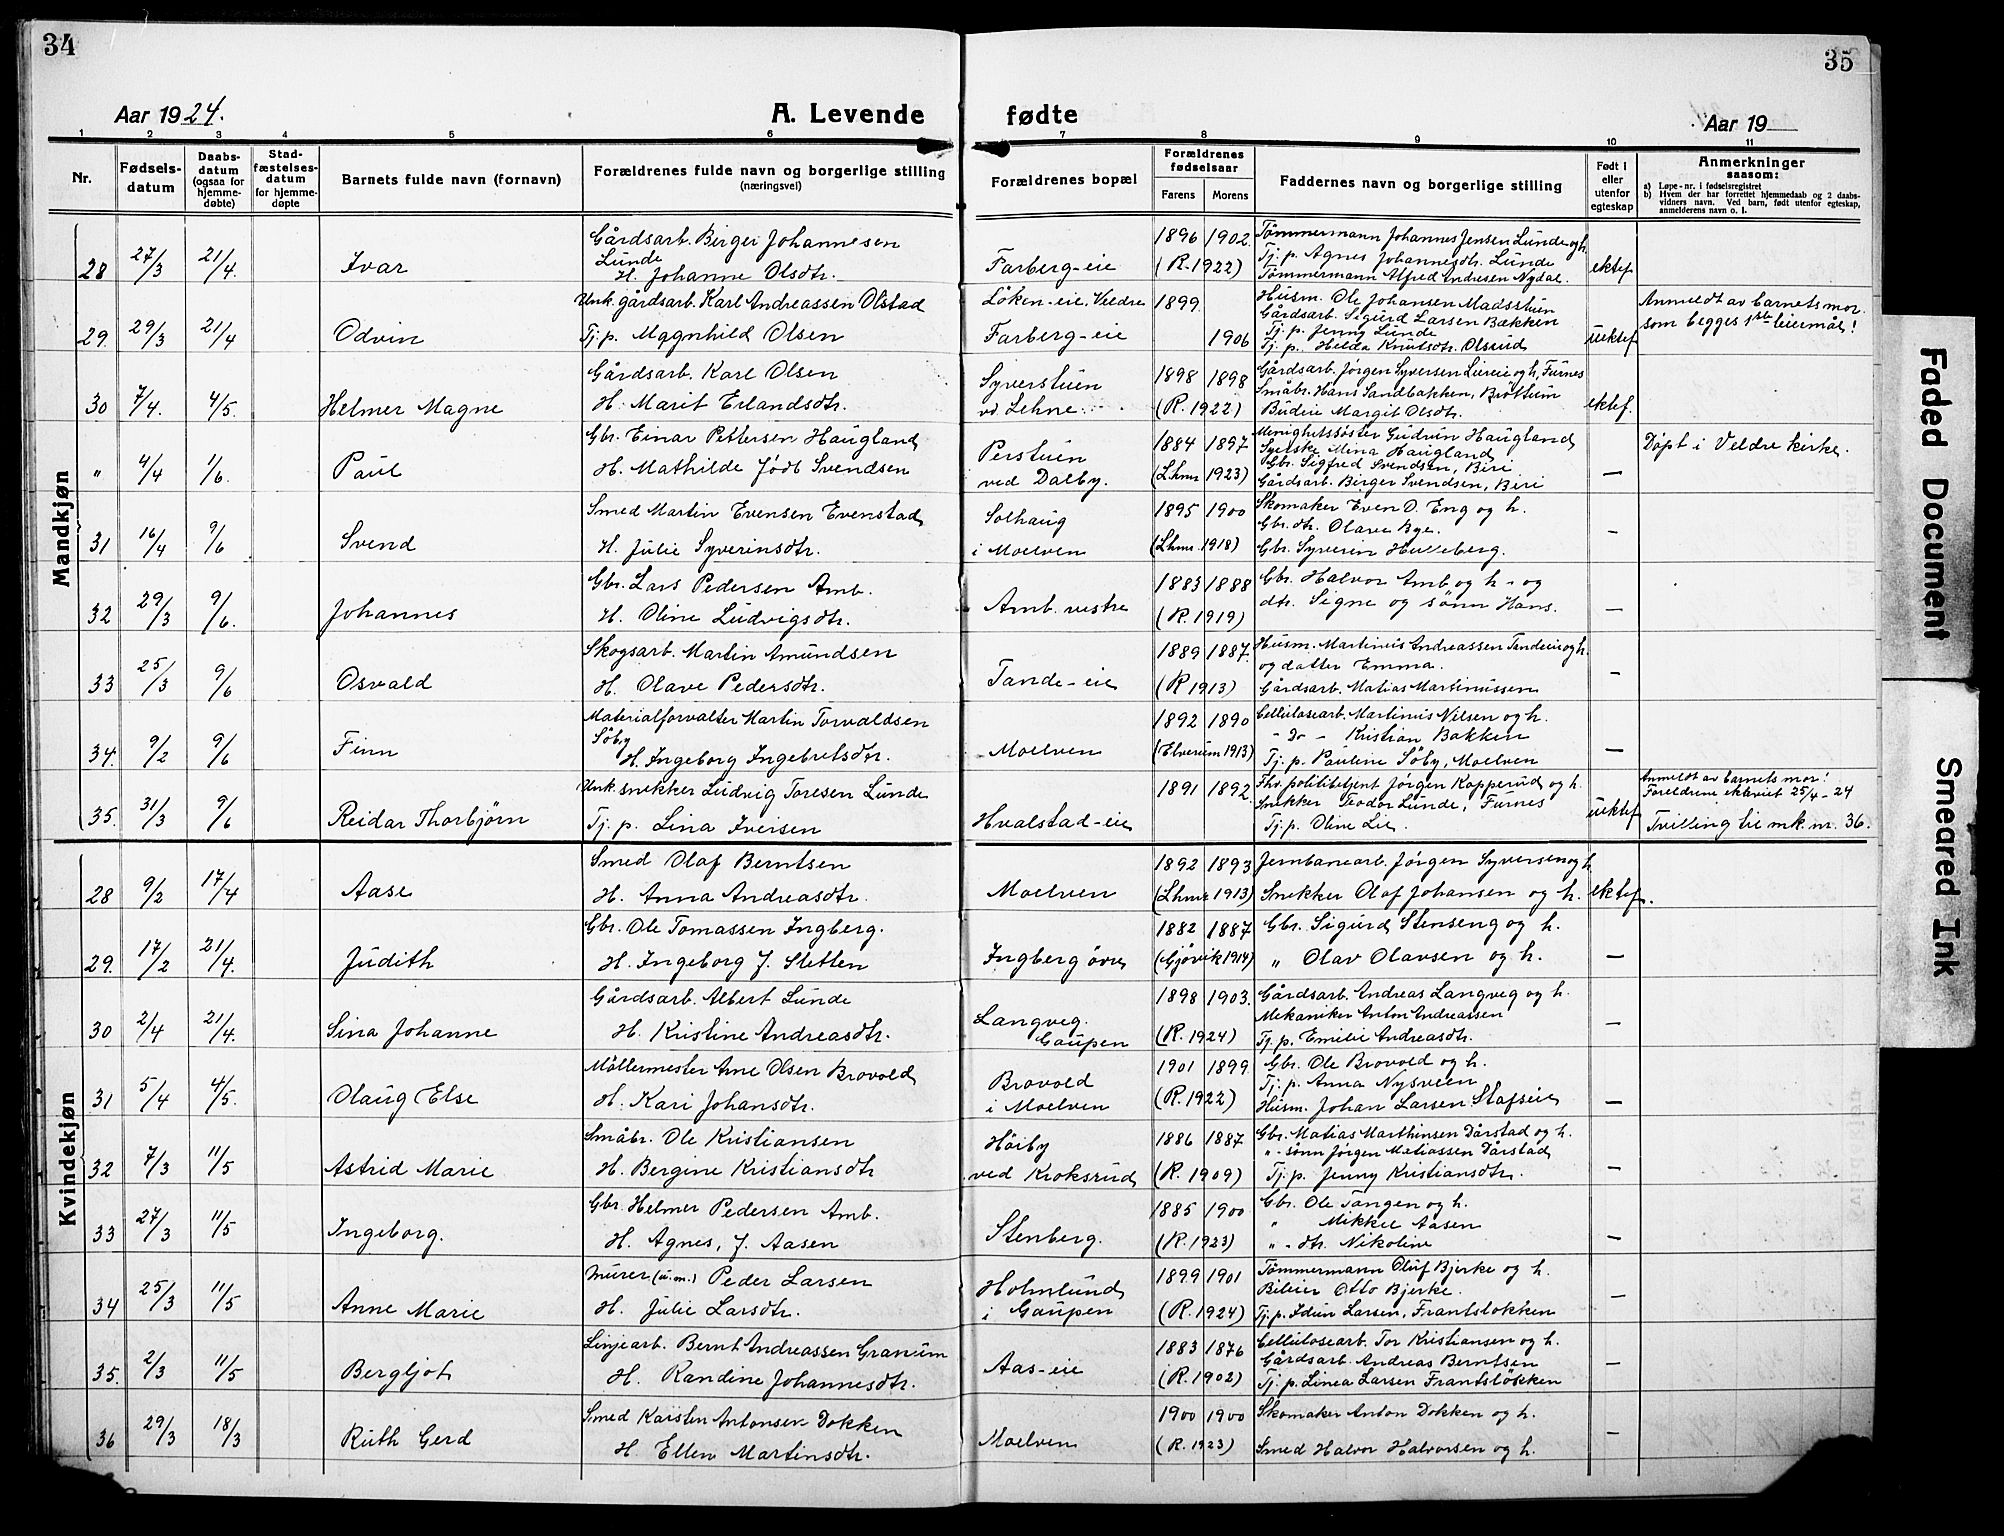 34
Aar 1924.
A. Levende
1 2 3 4 5 6
Nr.
Fødsels-
datum
Daabs-
datum
(ogsaa for
hjemme-
døbte)
Stad-
fæstelses-
datum
for hjemme-
døpte
Barnets fulde navn (fornavn)
Forældrenes fulde navn og borgerlige stilling
(næringsvei)
Mandkjøn
Gårdsarb. Birger Johannesen
Lunde
28 27/3 21/4. Ivar H. Johanne Olsdtr.
Unk. gårdsarb. Karl Andreassen Olstad
29. 29/3 21/4 Odvin Tj. p. Magnhild Olsen
Gårdsarb. Karl Olsen
30 7/4. 4/5. Helmer Magne H. Marit Erlandsdtr.
Gbr. Einar Pettersen Haugland
" 4/4 1/6. Paul H. Mathilde født Svendsen
Smed Martin Evensen Evenstad
31 16/4 9/6 Svend H. Julie Syverinsdtr.
Gbr. Lars Pedersen Amb.
32 29/3 9/6. Johannes H. Oline Ludvigsdtr.
Skogsarb. Martin Amundsen
33 25/3 9/6 Osvald H. Olave Pedersdtr.
Materialforvalter Martin Torvaldsen
Söby
34. 9/2 9/6 Finn H. Ingeborg Ingebretsdtr.
Unk. snekker Ludvig Toresen Lunde
35. 31/3 9/6 Reidar Thorbjörn Tj. p. Lina Iversen
Kvindekjøn
Smed Olaf Berntsen
28 9/2 17/4 Aase H. Anna Andreasdtr.
Gbr. Ole Tomassen Ingberg.
29. 17/2 21/4. Judith H. Ingeborg f. Sletten
Gårdsarb. Albert Lunde
30 2/4 21/4. Sina Johanne H. Kristine Andreasdtr.
Möllermester Arne Olsen Brovold
31 5/4 4/5. Olaug Else H. Kari Johansdtr.
Småbr. Ole Kristiansen
32 7/3 11/5 Astrid Marie H. Bergine Kristiansdtr
Gbr. Helmer Pedersen Amb.
33 27/3 11/5 Ingeborg. H. Agnes, f. Aasen
Murer (u.m.) Peder Larsen
34 25/3 11/5 Anne Marie H. Julie Larsdtr.
Linjearb. Bernt Andreassen Granum
35. 2/3 11/5 Bergljot H. Randine Johannesdtr.
Smed Karsten Antonsen Dokken
36 29/3 18/3 Ruth Gerd H. Ellen Martinsdtr.
35
fødte
Aar 19
7 8 9 10 11
Forældrenes bopæl
Forældrenes
fødselsaar
Farens Morens
Faddernes navn og borgerlige stilling
Født i
eller
utenfor
egteskap
Anmerkninger
saasom:
a) Løpe-nr. i fødselsregistret
b) Hvem der har forrettet hjemmedaab og 2 daabs-
vidners navn. Ved barn, født utenfor egteskap,
anmelderens navn o. l.
1896 1902. Tömmermann Johannes Jensen Lunde og h.
Tj. p. Agnes Johannesdtr. Lunde
Farberg-eie (R. 1922) Tömmermann Alfred Andresen Nydal. ektef.
Löken-eie, Veldre 1899 Husm. Ole Johansen Madsstuen Anmeldt av barnets mor.
Gårdsarb. Sigurd Larsen Bækken som begges 1ste leiemål!
Tj. p. Jenny Lunde
Farberg-eie 1906 Tj. p. Helda Knutsdtr. Olsrud uektef.
Syverstuen 1898 1898 Gårdsarb. Jörgen Syversen Lureie og h, Furnes
Småbr. Hans Sandbakken, Bröttum
vd Lehne. (R. 1922) Budeie Margit Olsdtr. ektef.
1884 1897 Menighetssöster Gudrun Haugland Döpt i Veldre kirke.
Perstuen Syerske Mina Haugland
Gbr. Sigfred Svendsen, Biri
ved Dalby. (Lhmr 1923) Gårdsarb. Birger Svendsen, Biri —
Solhaug 1895 1900 Skomaker Even O. Eng og h.
Gbr. dtr. Olave Bye.
i Moelven (Lhmr. 1918) Gbr. Syverin Hulleberg. —
1883 1888 Gbr. Halvor Amb og h - og
Amb. vestre (R. 1919) dtr. Signe og sönn Hans. —
1889 1887. Husm. Martinius Andreassen Tandeeie og h.
og datter Emma.
Tande-eie (R 1913) Gårdsarb. Matias Martinussen —
1892 1890 Cellulosearb. Martinius Nilsen og h.
- Do - Kristian Bakken
Moelven (Elverum 1913) Tj. p. Pauline Söby, Moelven —
1891 1892. Fhv. politibetjent Jörgen Kopperud og h. Anmeldt av barnets mor!
Snekker Teodor Lunde, Furnes Foreldrene ekteviet 25/4 - 24
Hvalstad-eie Tj. p. Oline Lie. uektef. Tvilling til mk. nr. 36.
1892 1893 Jernbanearb. Jörgen Syversen og h
Moelven (Lhmr 1913) Snekker Olaf Johansen og h. ektef.
1882 1887 Gbr. Sigurd Stenseng og h.
Ingberg övre (Gjövik 1914) " Olav Olavsen og h. —
1898 1903. Gårdsarb. Andreas Langveg og h.
Langveg. Mekaniker Anton Andreassen
Gaupen (R. 1924) Tj. p. Emilie Andreasdtr. —
1901 1899 Gbr. Ole Brovold og h.
Brovold Tj. p. Anna Nysveen
i Moelven (R. 1922) Husm. Johan Larsen Stafseie —
Höiby 1886 1887 Gbr. Matias Marthinsen Dårstad og h.
" - sönn Jörgen Matiassen Dårstad
ved Kroksrud (R. 1909) Tj. p. Jenny Kristiansdtr. —
1885 1900 Gbr. Ole Tangen og h.
" Mikkel Aasen
Stenberg. (R. 1923) " - dtr. Nikoline —
Holmlund 1899 1901 Tömmermann Oluf Bjerke og h.
Bileier Otto Bjerke.
i Gaupen (R. 1924) Tj. p. Idun Larsen, Frantslökken —
1883 1876 Cellulosearb. Tor Kristiansen og h.
Aas-eie Gårdsarb. Andreas Berntsen
(R. 1902) Tj. p. Linea Larsen Frantslökken —
1900 1900 Skomaker Anton Dokken og h.
Moelven (R. 1923) Smed Halvor Halvorsen og h. —
Faded Document
Smeared Ink